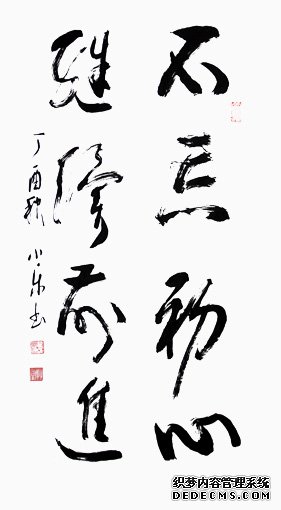 不忘初心
继续前進
丁酉秋 小乐书
织梦内容管理系统
DEDECMS.COM